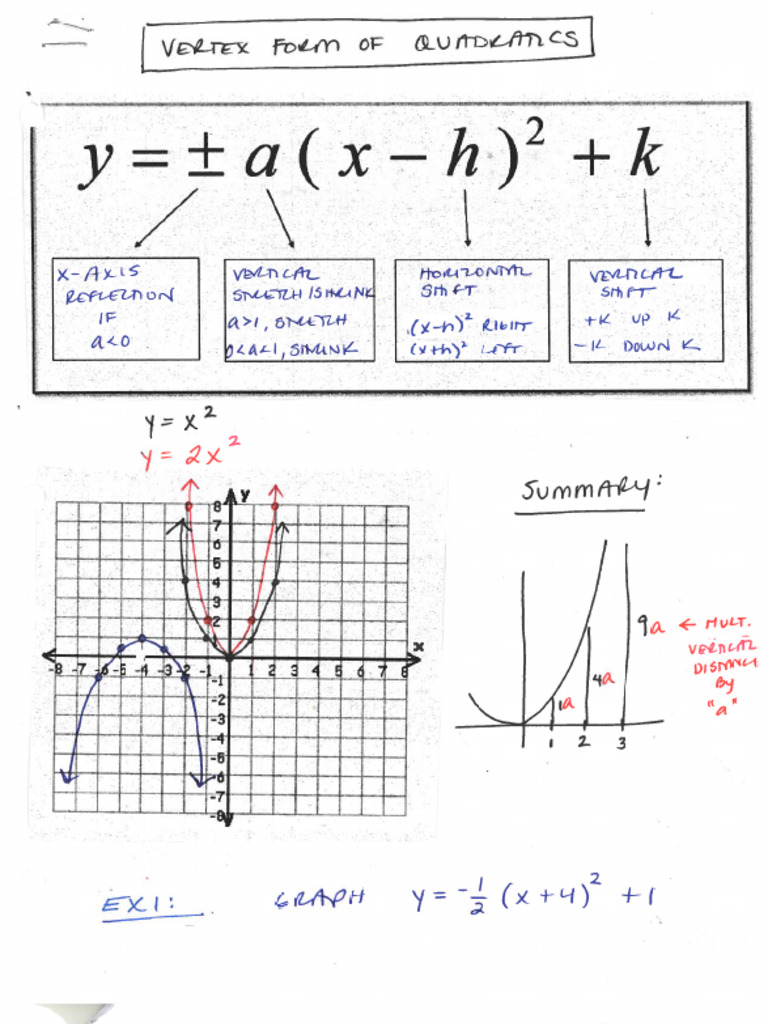 VERTEX FORM OF QUADRATICS
y = ± a ( x − h )² + k
X-AXIS
REFLECTION
IF
a<0
VERTICAL
STRETCH/SHRINK
a>1, STRETCH
0<a<1, SHRINK
HORIZONTAL
SHIFT
(x-h)² RIGHT
(x+h)² LEFT
VERTICAL
SHIFT
+K UP K
-K DOWN K
y = x²
y = 2x²
SUMMARY:
y
8
7
6
5
4
3
2
x
-8 -7 -6 -5 -4 -3 -2 -1 1 2 3 4 5 6 7 8
-1
-2
-3
-4
-5
-6
-7
-8
9a ← MULT.
VERTICAL
DISTANCE
By
"a"
1a 4a
1 2 3
EX1: GRAPH y = -1/2 (x+4)² +1